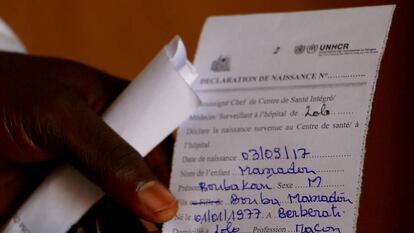 UNHCR
DECLARATION DE NAISSANCE N°
soussigné Chef de Centre de Santé Intégré/
Médecin/ Surveillant à l'hôpital de Lolo
Déclare la naissance survenue au Centre de santé/ à
l'hôpital,
Date de naissance 03/09/17
Nom de l'enfant Mamadou
Prénom Boubakar Sexe M
Fils ou Fille de Bouba Mamadou
Né le 01/01/1977 A Berberati
Domicile Lolo Profession Maçon